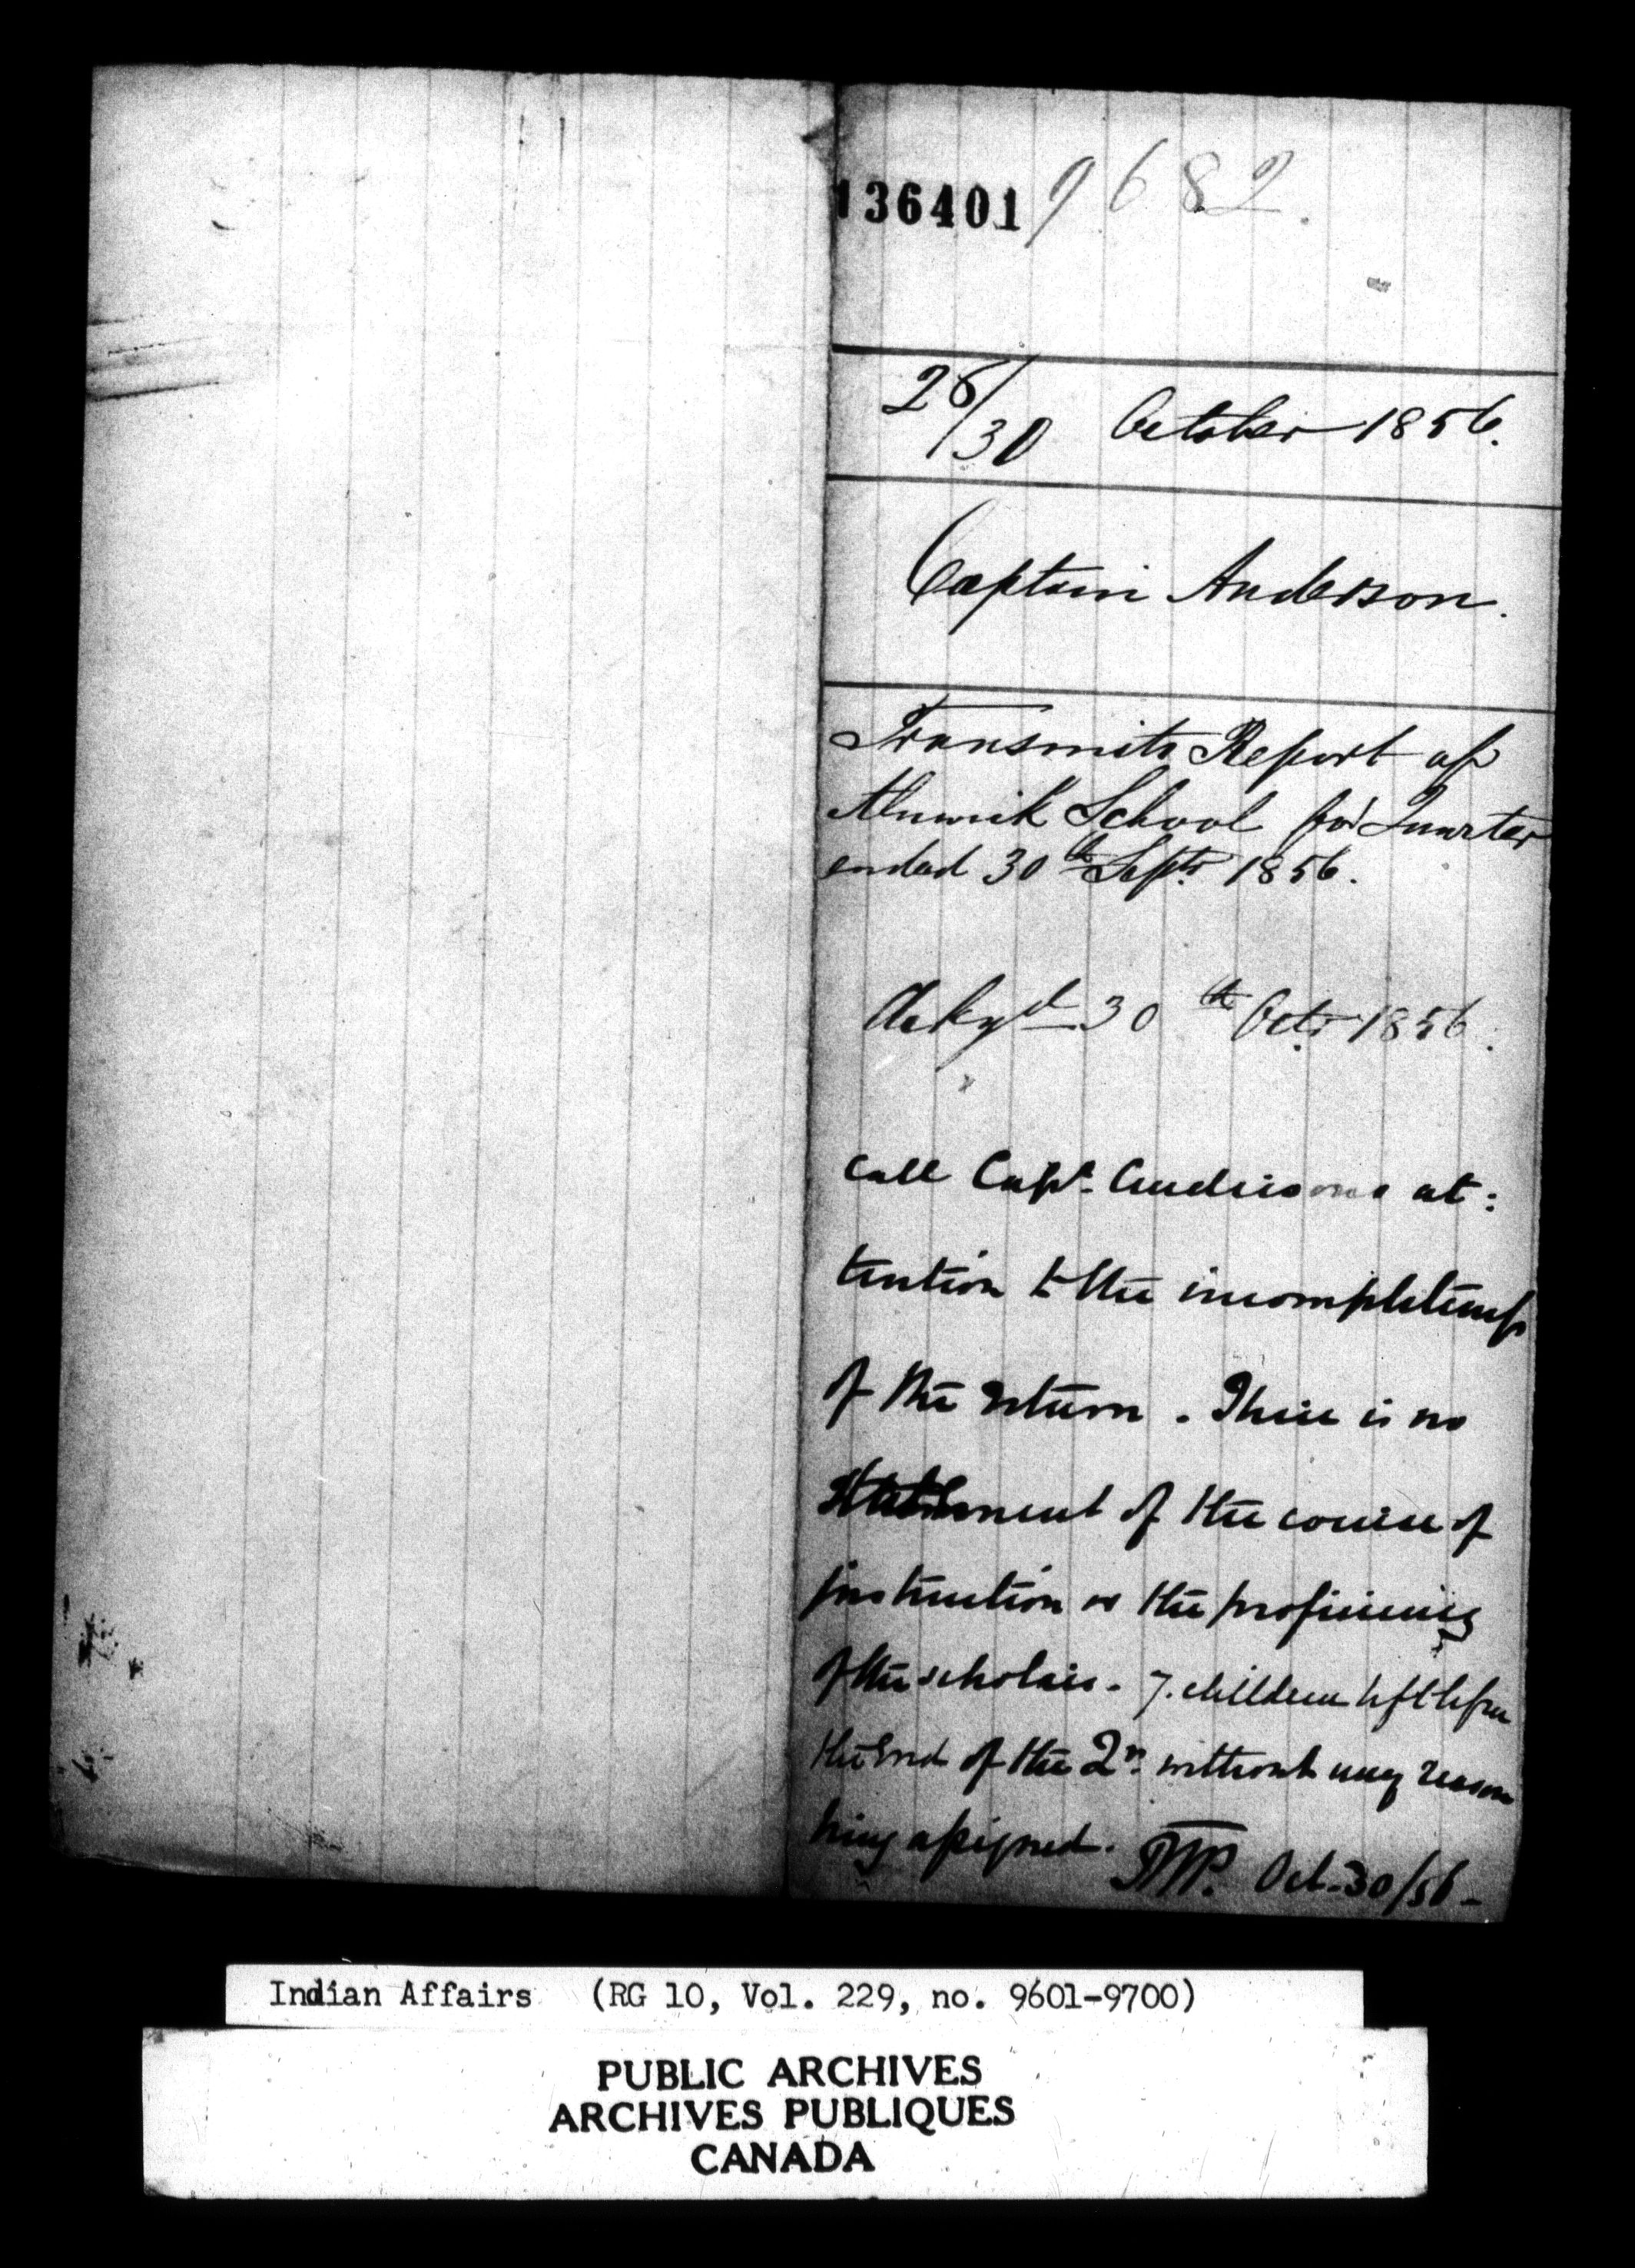 136401 9682.
28/30 October 1856.
Captain Anderson.
Transmits Report of
Alnwick School for Quarter
ended 30th Septr 1856.
Ackyd 30th Octr 1856.
Call Capt. Andersons at:
tention to the incompleteness
of the return. There is no
statement of the course of
instruction or the proficiency
of the scholars. 7. children left before
the end of the Qr. without any reason
being assigned. Oct. 30/56 -
Indian Affairs (RG 10, Vol. 229, no. 9601-9700)
PUBLIC ARCHIVES
ARCHIVES PUBLIQUES
CANADA